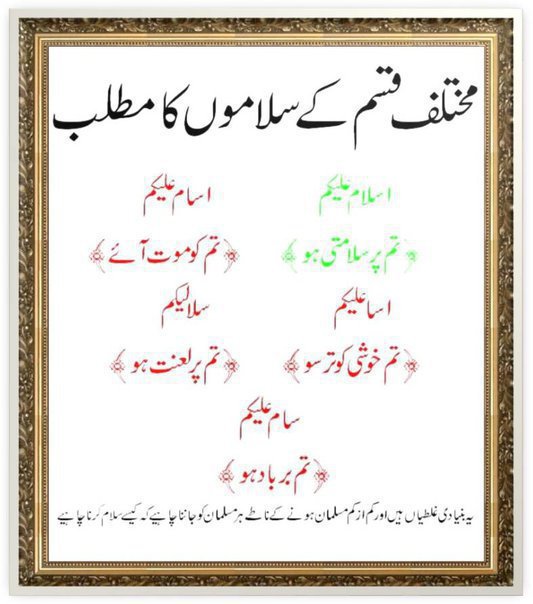 مختلف قسم کے سلاموں کا مطلب
اسلام علیکم
اسام علیکم
﴿تم پر سلامتی ہو﴾
﴿تم کو موت آئے﴾
اسا علیکم
سلا لیکم
﴿تم خوشی کو ترسو﴾
﴿تم پر لعنت ہو﴾
سام علیکم
﴿تم برباد ہو﴾
یہ بنیادی غلطیاں ہیں اور کم از کم مسلمان ہونے کے ناطے ہر مسلمان کو جاننا چاہیے کہ کیسے سلام کرنا چاہیے